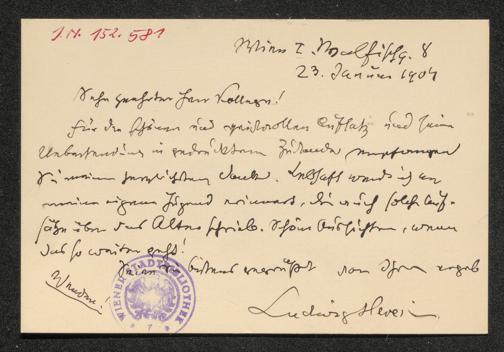 J.N. 152.581
Wien I. Wallfischg. 8
23. Januar 1904
Sehr geehrter Herr Kollege!
Für den schönen und geistvollen Aufsatz und seine
Uebersendung in gedrucktem Zustande empfangen
Sie meinen herzlichsten Dank. Lebhaft wurde ich an
meine eigene Jugend erinnert, die auch solche Auf-
sätze über das Alter schrieb. Schöne Aussichten, wenn
das so weiter geht!
bestens gegrüßt von Ihrem ergeb
Wenden!
Ludwig Hevesi
WIENER STADTBIBLIOTHEK